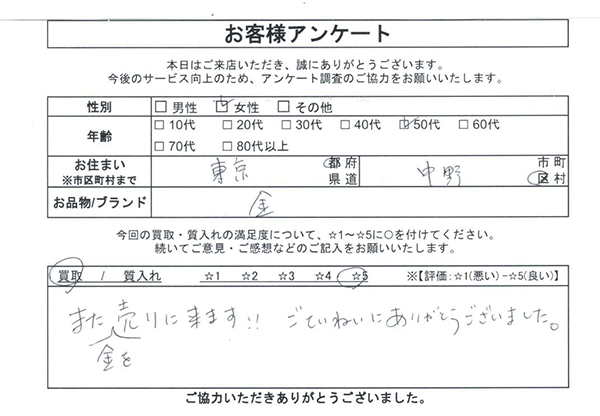 お客様アンケート
本日はご来店いただき、誠にありがとうございます。
今後のサービス向上のため、アンケート調査のご協力をお願いいたします。
性別 □ 男性 □ 女性 □ その他
年齢 □ 10代 □ 20代 □ 30代 □ 40代 □ 50代 □ 60代
□ 70代 □ 80代以上
お住まい
※市区町村まで
東京 都府県道 中野 市町区村
お品物/ブランド 金
今回の買取・質入れの満足度について、☆1～☆5に○を付けてください。
続いてご意見・ご感想などのご記入をお願いいたします。
買取 / 質入れ ☆1 ☆2 ☆3 ☆4 ☆5 ※【評価:☆1(悪い)-☆5(良い)】
また売りに来ます!! ごていねいにありがとうございました。
金を
ご協力いただきありがとうございました。